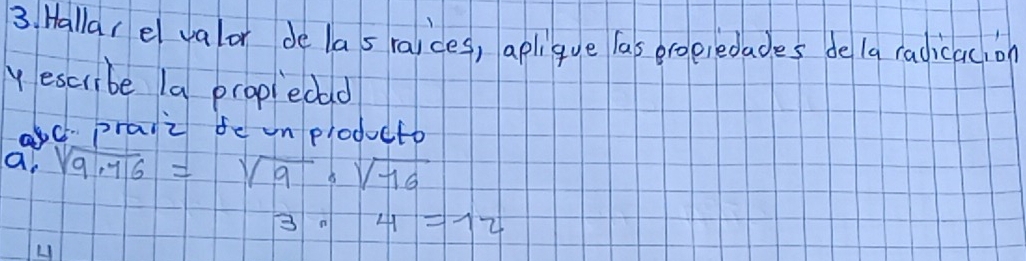 3. Hallar el valor de las raices, aplique las propiedades de la radicación
y escribe la propiedad
raiz de un producto
a. √9.16 = √9 . √16
3 . 4 = 12
4